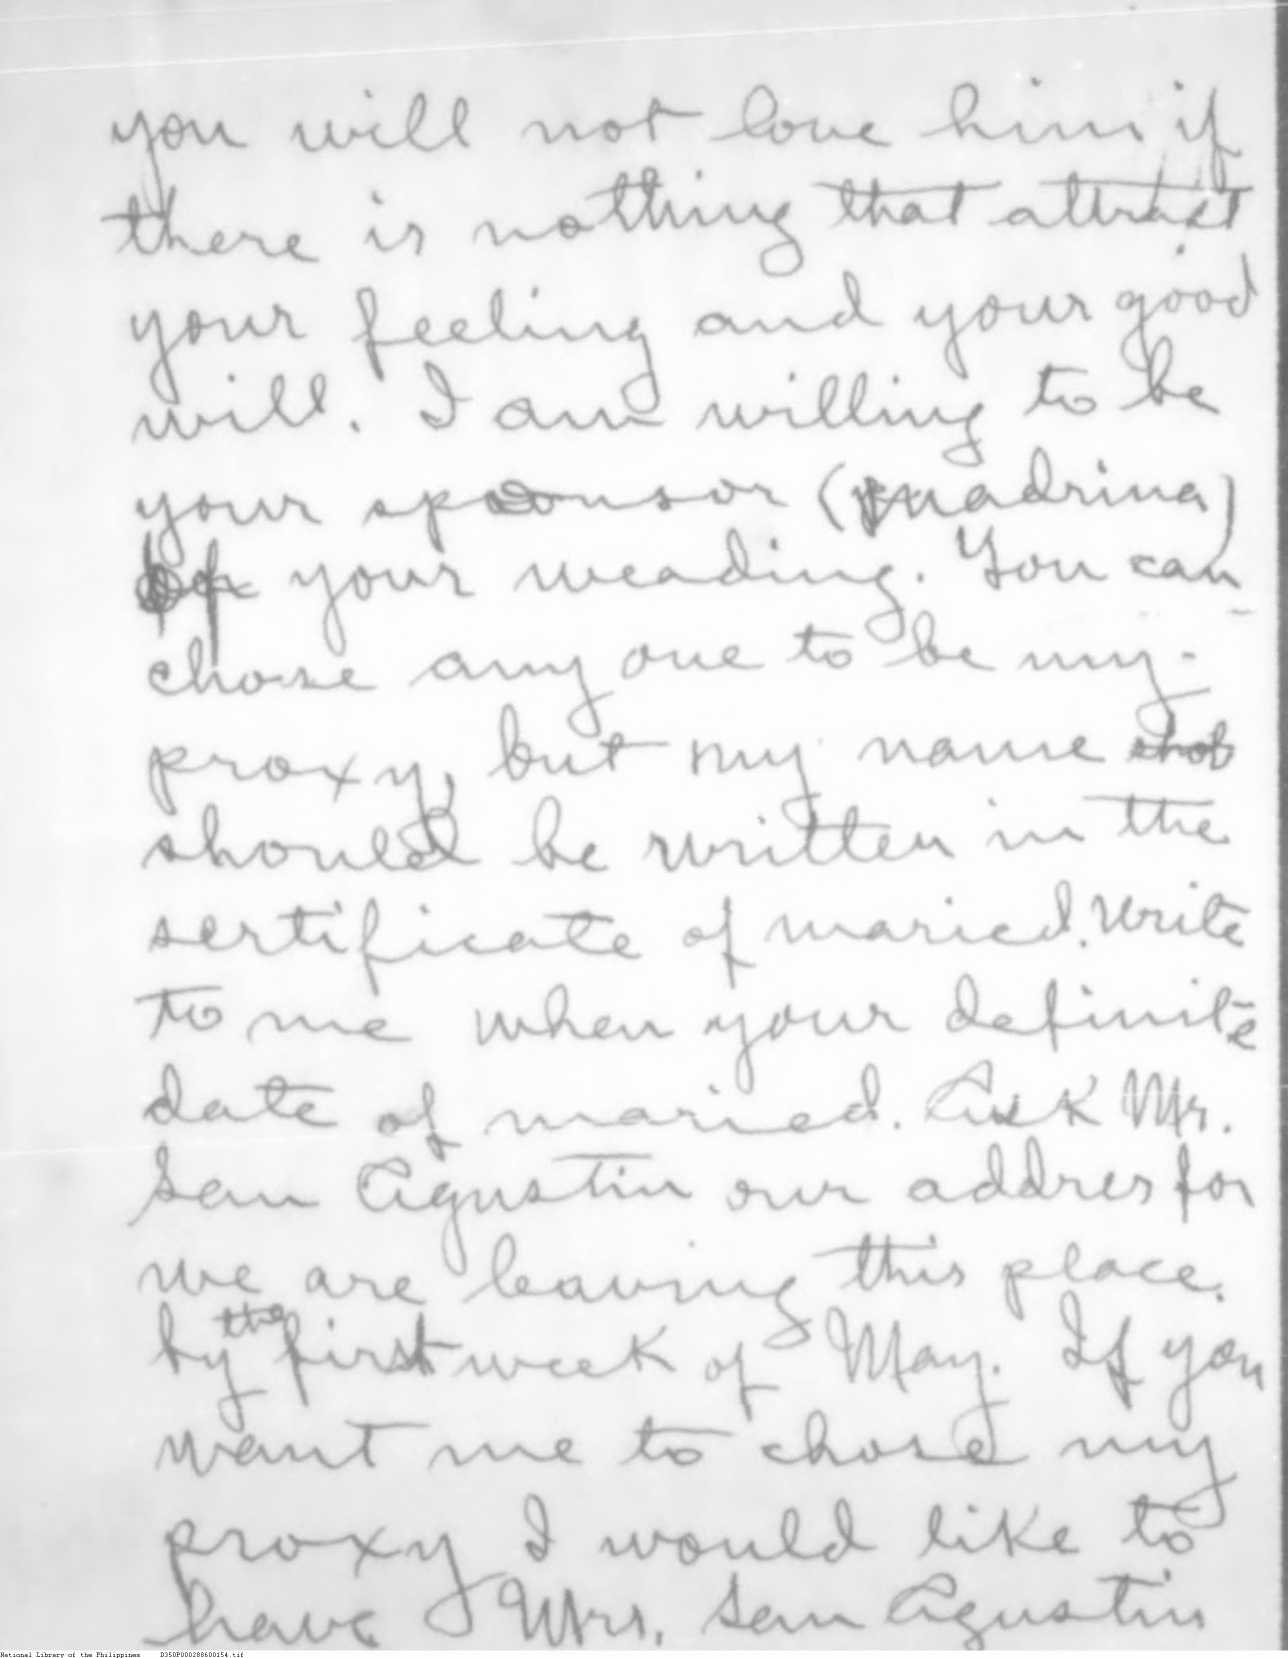 you will not love him if
there is nothing that attract
your feeling and your good
will. I am willing to be
your sponsor (madrina)
of your weading. You can
chose any one to be my
proxy, but my name
should be written in the
sertificate of maried. Write
to me when your definite
date of maried. Ask Mr.
San Agustin our addres for
we are leaving this place.
by the first week of May. If you
want me to chose my
proxy I would like to
have Mrs. San Agustin
National Library of the Philippines D350P000288600154.tif